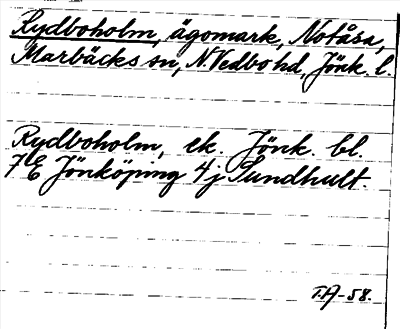 Rydboholm, ägomark, Notåsa,
Marbäcks sn, N. Vedbo hd, Jönk. l.
Rydboholm, ek. Jönk. bl.
7E Jönköping 4j Sundhult.
T.A-58.